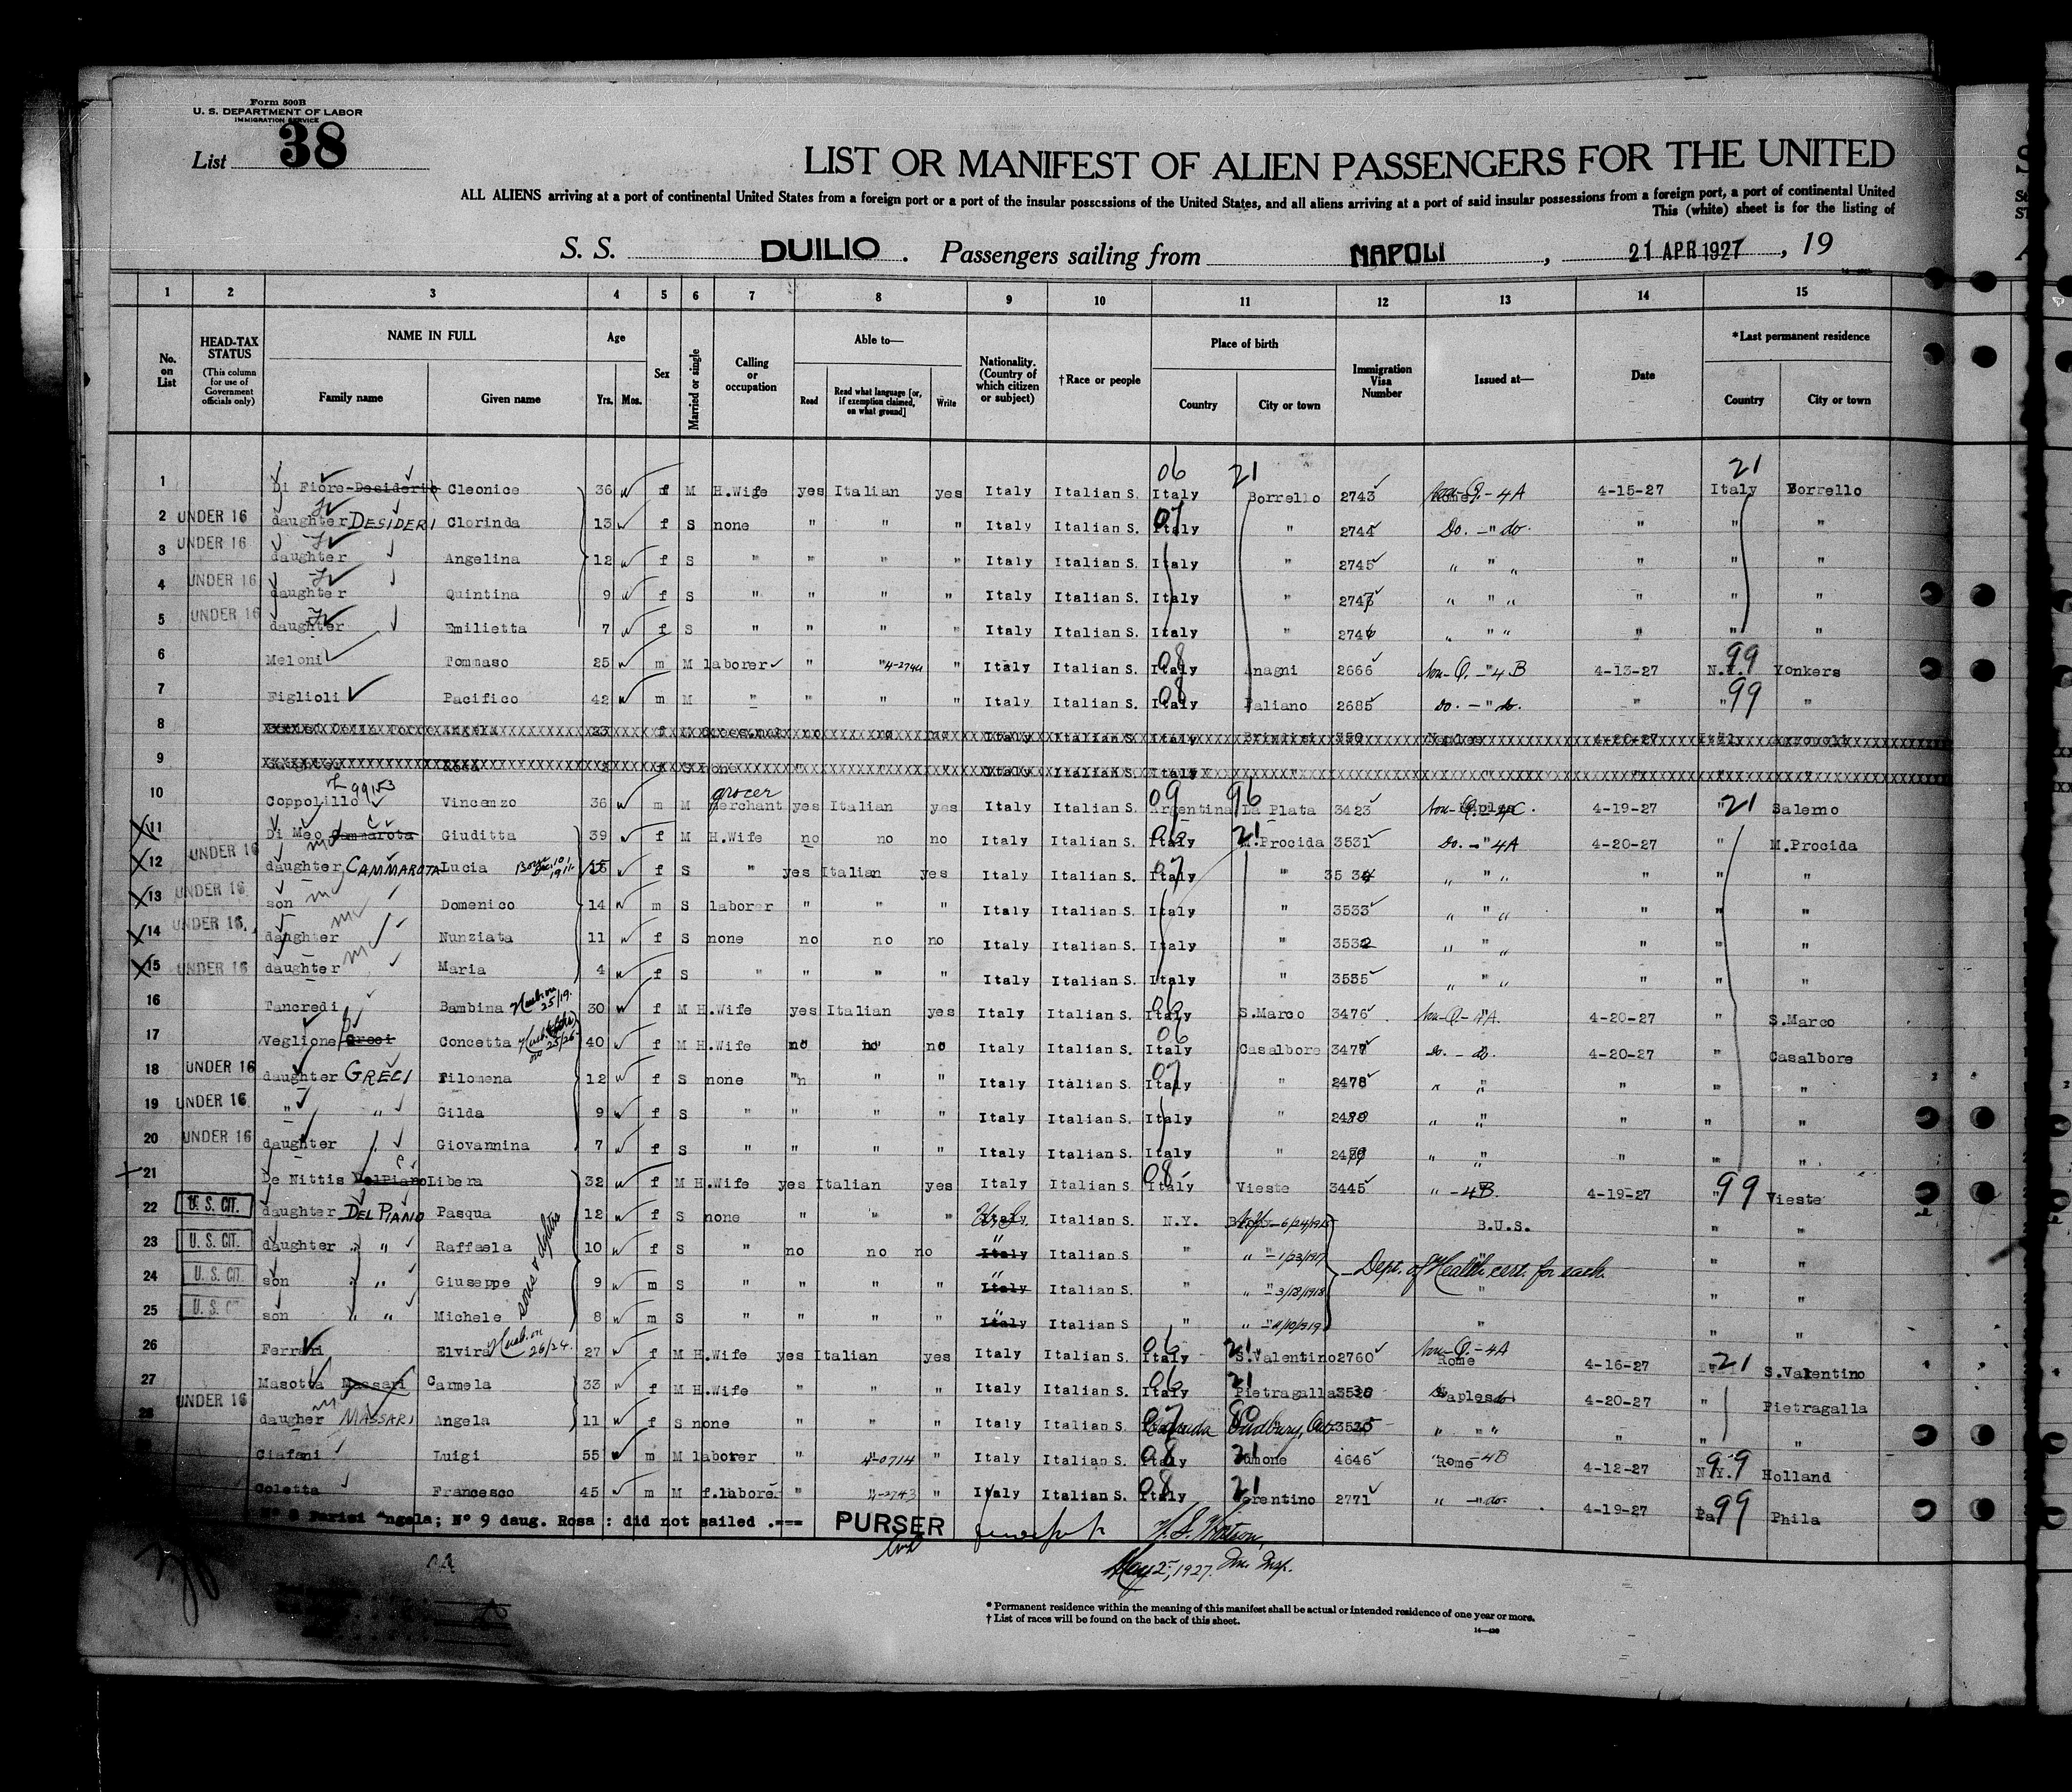 Form 500B
U. S. DEPARTMENT OF LABOR
IMMIGRATION SERVICE
List 38
LIST OR MANIFEST OF ALIEN PASSENGERS FOR THE UNITED
ALL ALIENS arriving at a port of continental United States from a foreign port or a port of the insular possessions of the United States, and all aliens arriving at a port of said insular possessions from a foreign port, a port of continental United
This (white) sheet is for the listing of
S. S. DUILIO. Passengers sailing from NAPOLI, 21 APR 1927, 19
1 2 3 4 5 6 7 8 9 10 11 12 13 14 15
No. on List HEAD-TAX STATUS (This column for use of Government officials only) NAME IN FULL Family name Given name Age Yrs. Mos. Sex Married or single Calling or occupation Able to— Read Read what language [or, if exemption claimed, on what ground] Write Nationality. (Country of which citizen or subject) †Race or people Place of birth Country City or town Immigration Visa Number Issued at— Date *Last permanent residence Country City or town
06 21 21
1 Di Fiore-Desiderio Cleonice 36 f M H.Wife yes Italian yes Italy Italian S. Italy Borrello 2743 4A 4-15-27 Italy Borrello
2 UNDER 16 daughter DESIDERI Clorinda 13 f S none " " " Italy Italian S. Italy " 2744 Do. - " do. " " "
3 UNDER 16 daughter Angelina 12 f S " " " " Italy Italian S. Italy " 2745 " " " " " "
4 UNDER 16 daughter Quintina 9 f S " " " " Italy Italian S. Italy " " " " " " "
5 UNDER 16 daughter Emilietta 7 f S " " " " Italy Italian S. Italy " " " " " " "
6 Meloni Tommaso 25 m M laborer " " " Italy Italian S. 08 Italy Anagni 2666 Non-Q. - " 4B 4-13-27 N.Y. 99 Yonkers
7 Figlioli Pacifico 42 m M " " " " Italy Italian S. 08 Italy Paliano 2685 Do. - " do. " " 99 "
8 Angela 23 f no no no Italy Italian S. Italy Brindisi 350 Naples 4-20-27 Italy
9 daughter Rosa Italy Italian S. Italy
10 Coppolillo Vincenzo 36 m M grocer Merchant yes Italian yes Italy Italian S. 09 Argentina 96 La Plata 3423 Non-Q. 4-19-27 " 21 Salerno
11 Di Meo Cammarota Giuditta 39 f M H.Wife no no no Italy Italian S. Italy 21 M.Procida 3531 Do. - " 4A 4-20-27 " M.Procida
12 UNDER 16 daughter CAMMAROTA Lucia 15 f S " yes Italian yes Italy Italian S. 07 Italy " 35 34 " " " " " "
13 UNDER 16 son Domenico 14 m S laborer " " " Italy Italian S. Italy " 3533 " " " " " "
14 UNDER 16. daughter Nunziata 11 f S none no no no Italy Italian S. Italy " 3532 " " " " " "
15 UNDER 16 daughter Maria 4 f S " " " " Italy Italian S. Italy " 3535 " " " " " "
16 Tancredi Bambina 30 f M H.Wife yes Italian yes Italy Italian S. 06 Italy S.Marco 3476 Non-Q - " A. 4-20-27 " S.Marco
17 Veglione Greci Concetta 40 f M H.Wife no no no Italy Italian S. 06 Italy Casalbore 3477 do. - do. 4-20-27 " Casalbore
18 UNDER 16 daughter GRECI Filomena 12 f S none " " " Italy Italian S. 07 Italy " 2478 " " " " "
19 UNDER 16 " " Gilda 9 f S " " " " Italy Italian S. Italy " " " " " "
20 UNDER 16 daughter " Giovannina 7 f S " " " " Italy Italian S. Italy " " " " " "
21 De Nittis DelPiano Libera 32 f M H.Wife yes Italian yes Italy Italian S. 08 Italy Vieste 3445 " - 4B. 4-19-27 " 99 Vieste
22 U. S. CIT. daughter DEL PIANO Pasqua 12 f S none " " " Italy Italian S. N.Y. B.U.S. " "
23 U. S. CIT. daughter " " Raffaela 10 f S " no no no Italy Italian S " " " - 1/23/1917 " "
24 U. S. CIT. son " " Giuseppe 9 m S " " " " Italy Italian S. " " - 3/18/1918 " " "
25 U. S. CIT son " " Michele 8 m S " " " " Italy Italian S " " " " "
sons & dghters
Dept. of Health cert. for each
26 Ferrari Elvira Husb. on 26/24. 27 f M H.Wife yes Italian yes Italy Italian S. 06 Italy 21 S.Valentino 2760 Non-Q. - 4A Rome 4-16-27 21 S.Valentino
27 Masotta Massari Carmela 33 f M H.Wife " " " Italy Italian S. 06 Italy 21 Pietragalla Naples do. 4-20-27 " Pietragalla
28 UNDER 16 daugher MASSARI Angela 11 f S none " " " Italy Italian S. Canada Sudbury, Ont. " " " " " "
Ciafani Luigi 55 m M laborer " " Italy Italian S. 08 Italy 21 4646 Rome - 4B 4-12-27 N.Y. 99 Holland
Coletta Francesco 45 m M f.labore " " Italy Italian S. 08 Italy 21 Ferentino 2771 " - " do. 4-19-27 Pa 99 Phila
N° 8 Parisi Angela; N° 9 daug. Rosa : did not sailed .=== PURSER
May 2, 1927. Imm. Insp.
* Permanent residence within the meaning of this manifest shall be actual or intended residence of one year or more.
† List of races will be found on the back of this sheet.